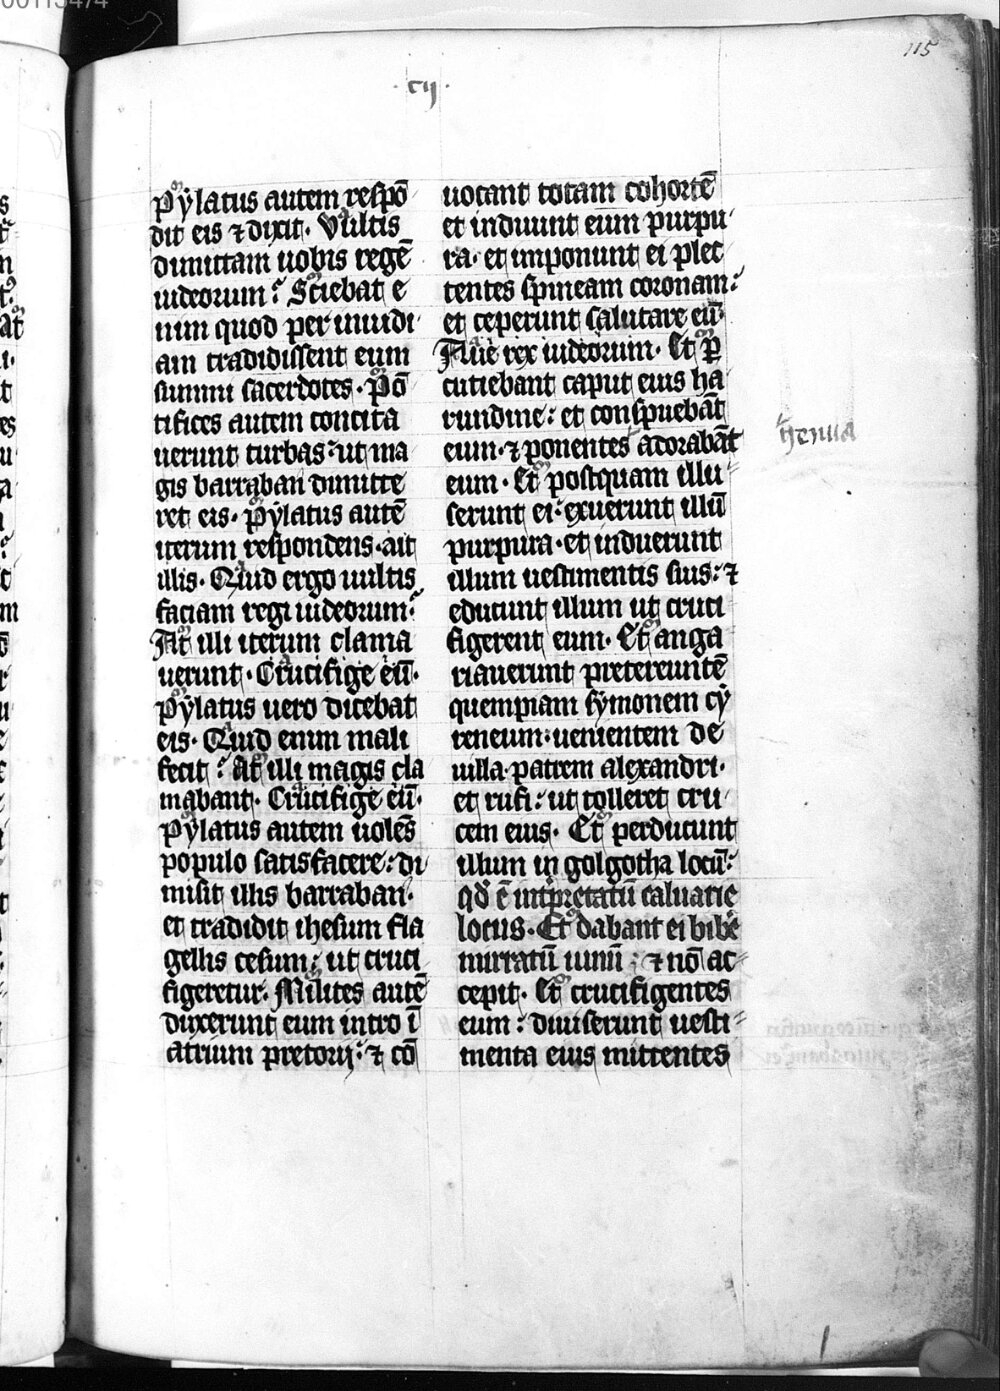 115
·cij·
Pylatus autem respō
dit eis ⁊ dixit. Vultis
dimittam uobis regē
iudeorum? Sciebat e
nim quod per inuidi
am tradidissent eum
summi sacerdotes. Pō
tifices autem concita
uerunt turbas: ut ma
gis barraban dimitte
ret eis. Pylatus autē
iterum respondens. ait
illis. Quid ergo uultis
faciam regi iudeorum?
At illi iterum clama
uerunt. Crucifige eū.
Pylatus uero dicebat
eis. Quid enim mali
fecit? At illi magis cla
mabant. Crucifige eū.
Pylatus autem uolēs
populo satisfacere: di
misit illis barraban.
et tradidit ihesum fla
gellis cesum: ut cruci
figeretur. Milites autē
duxerunt eum intro ī
atrium pretorij: ⁊ cō
uocant totam cohortē
et induunt eum purpu
ra. et imponunt ei plec
tentes spineam coronam:
et ceperunt salutare eū.
Aue rex iudeorum. Et ꝑ
cutiebant caput eius ha
rundine: et conspuebāt
eum. ⁊ ponentes adorabāt
genua
eum. Et postquam illu
serunt ei: exuerunt illū
purpura. et induerunt
illum uestimentis suis: ⁊
educunt illum ut cruci
figerent eum. Et anga
riauerunt pretereuntē
quempiam symonem cy
reneum: uenientem de
uilla. patrem alexandri.
et rufi: ut tolleret cru
cem eius. Et perducunt
illum in golgotha locū:
qđ ē int̄pretatū caluarie
locus. Et dabant ei bibe̅
mirratū uinū: ⁊ nō ac
cepit. Et crucifigentes
eum: diuiserunt uesti
menta eius mittentes